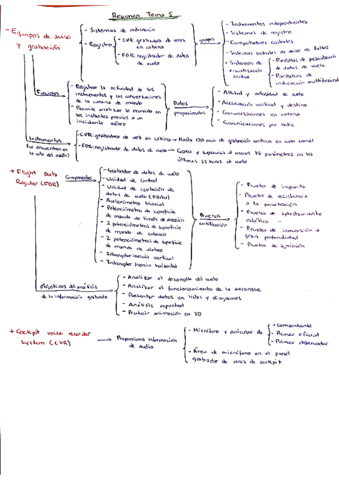 Resumen Tema 5
- Equipos de aviso y grabación
- Sistemas de indicación
- Registro
- CVR: grabadora de voces en cabina
- FDR: registrador de datos de vuelo
grupos
- Instrumentos independientes
- Sistemas de registro
- Computadores centrales
- Sistemas centrales de aviso de fallos
- Sistemas de visualización central
- Pantallas de presentación de datos de vuelo
- Pantallas de indicación multifuncional
Funciones
- Registrar la actividad de los instrumentos y las conversaciones de la cabina de mando
- Permite analizar lo ocurrido en los instantes previos a un incidente aéreo
Datos proporcionados
- Altitud y velocidad de vuelo
- Aceleración vertical y destino
- Conversaciones en cabina
- Comunicaciones por radio
Instrumentos
(se encuentran en la cola del avión)
- CVR: grabadora de voces en cabina → Hasta 120 min de grabación continua en cada canal
- FDR: registrador de datos de vuelo →
últimas 25 horas de vuelo
+ Flight Data
(FDR)
Componentes
- Grabador de datos de vuelo
- Unidad de control
- Unidad de captación de datos de vuelo (FDAU)
- Acelerómetro triaxial
- Potenciómetro de superficie de mando de timón de dirección
- 2 potenciómetros de superficie de mando de cabeceo
- 2 potenciómetros de superficie de mando de alabeo
- Interruptor inercia vertical
- Interruptor inercia horizontal
Pruebas certificación
- Prueba de impacto
- Prueba de resistencia a la penetración
- Prueba de aplastamiento estático
- Prueba de inmersión a gran profundidad
- Prueba de ignición
Objetivos del análisis de la información grabada
- Analizar el desarrollo del vuelo
- Analizar el funcionamiento de la aeronave
- Presentar datos en listas y diagramas
- Análisis espectral
- Producir animación en 3D
+ Cockpit voice recorder system (CVR)
→ Proporciona información de audio
- Micrófono y auricular de
- Comandante
- Primer oficial
- Primer observador
- Área de micrófono en el panel grabador de voces de cockpit